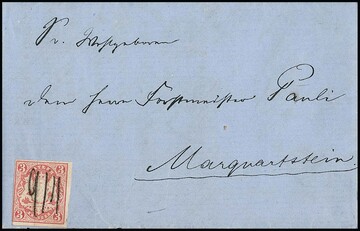 Sr. Wohlgeboren
dem Herrn Forstmeister Pauli
Marquartstein.
3 3
3 3